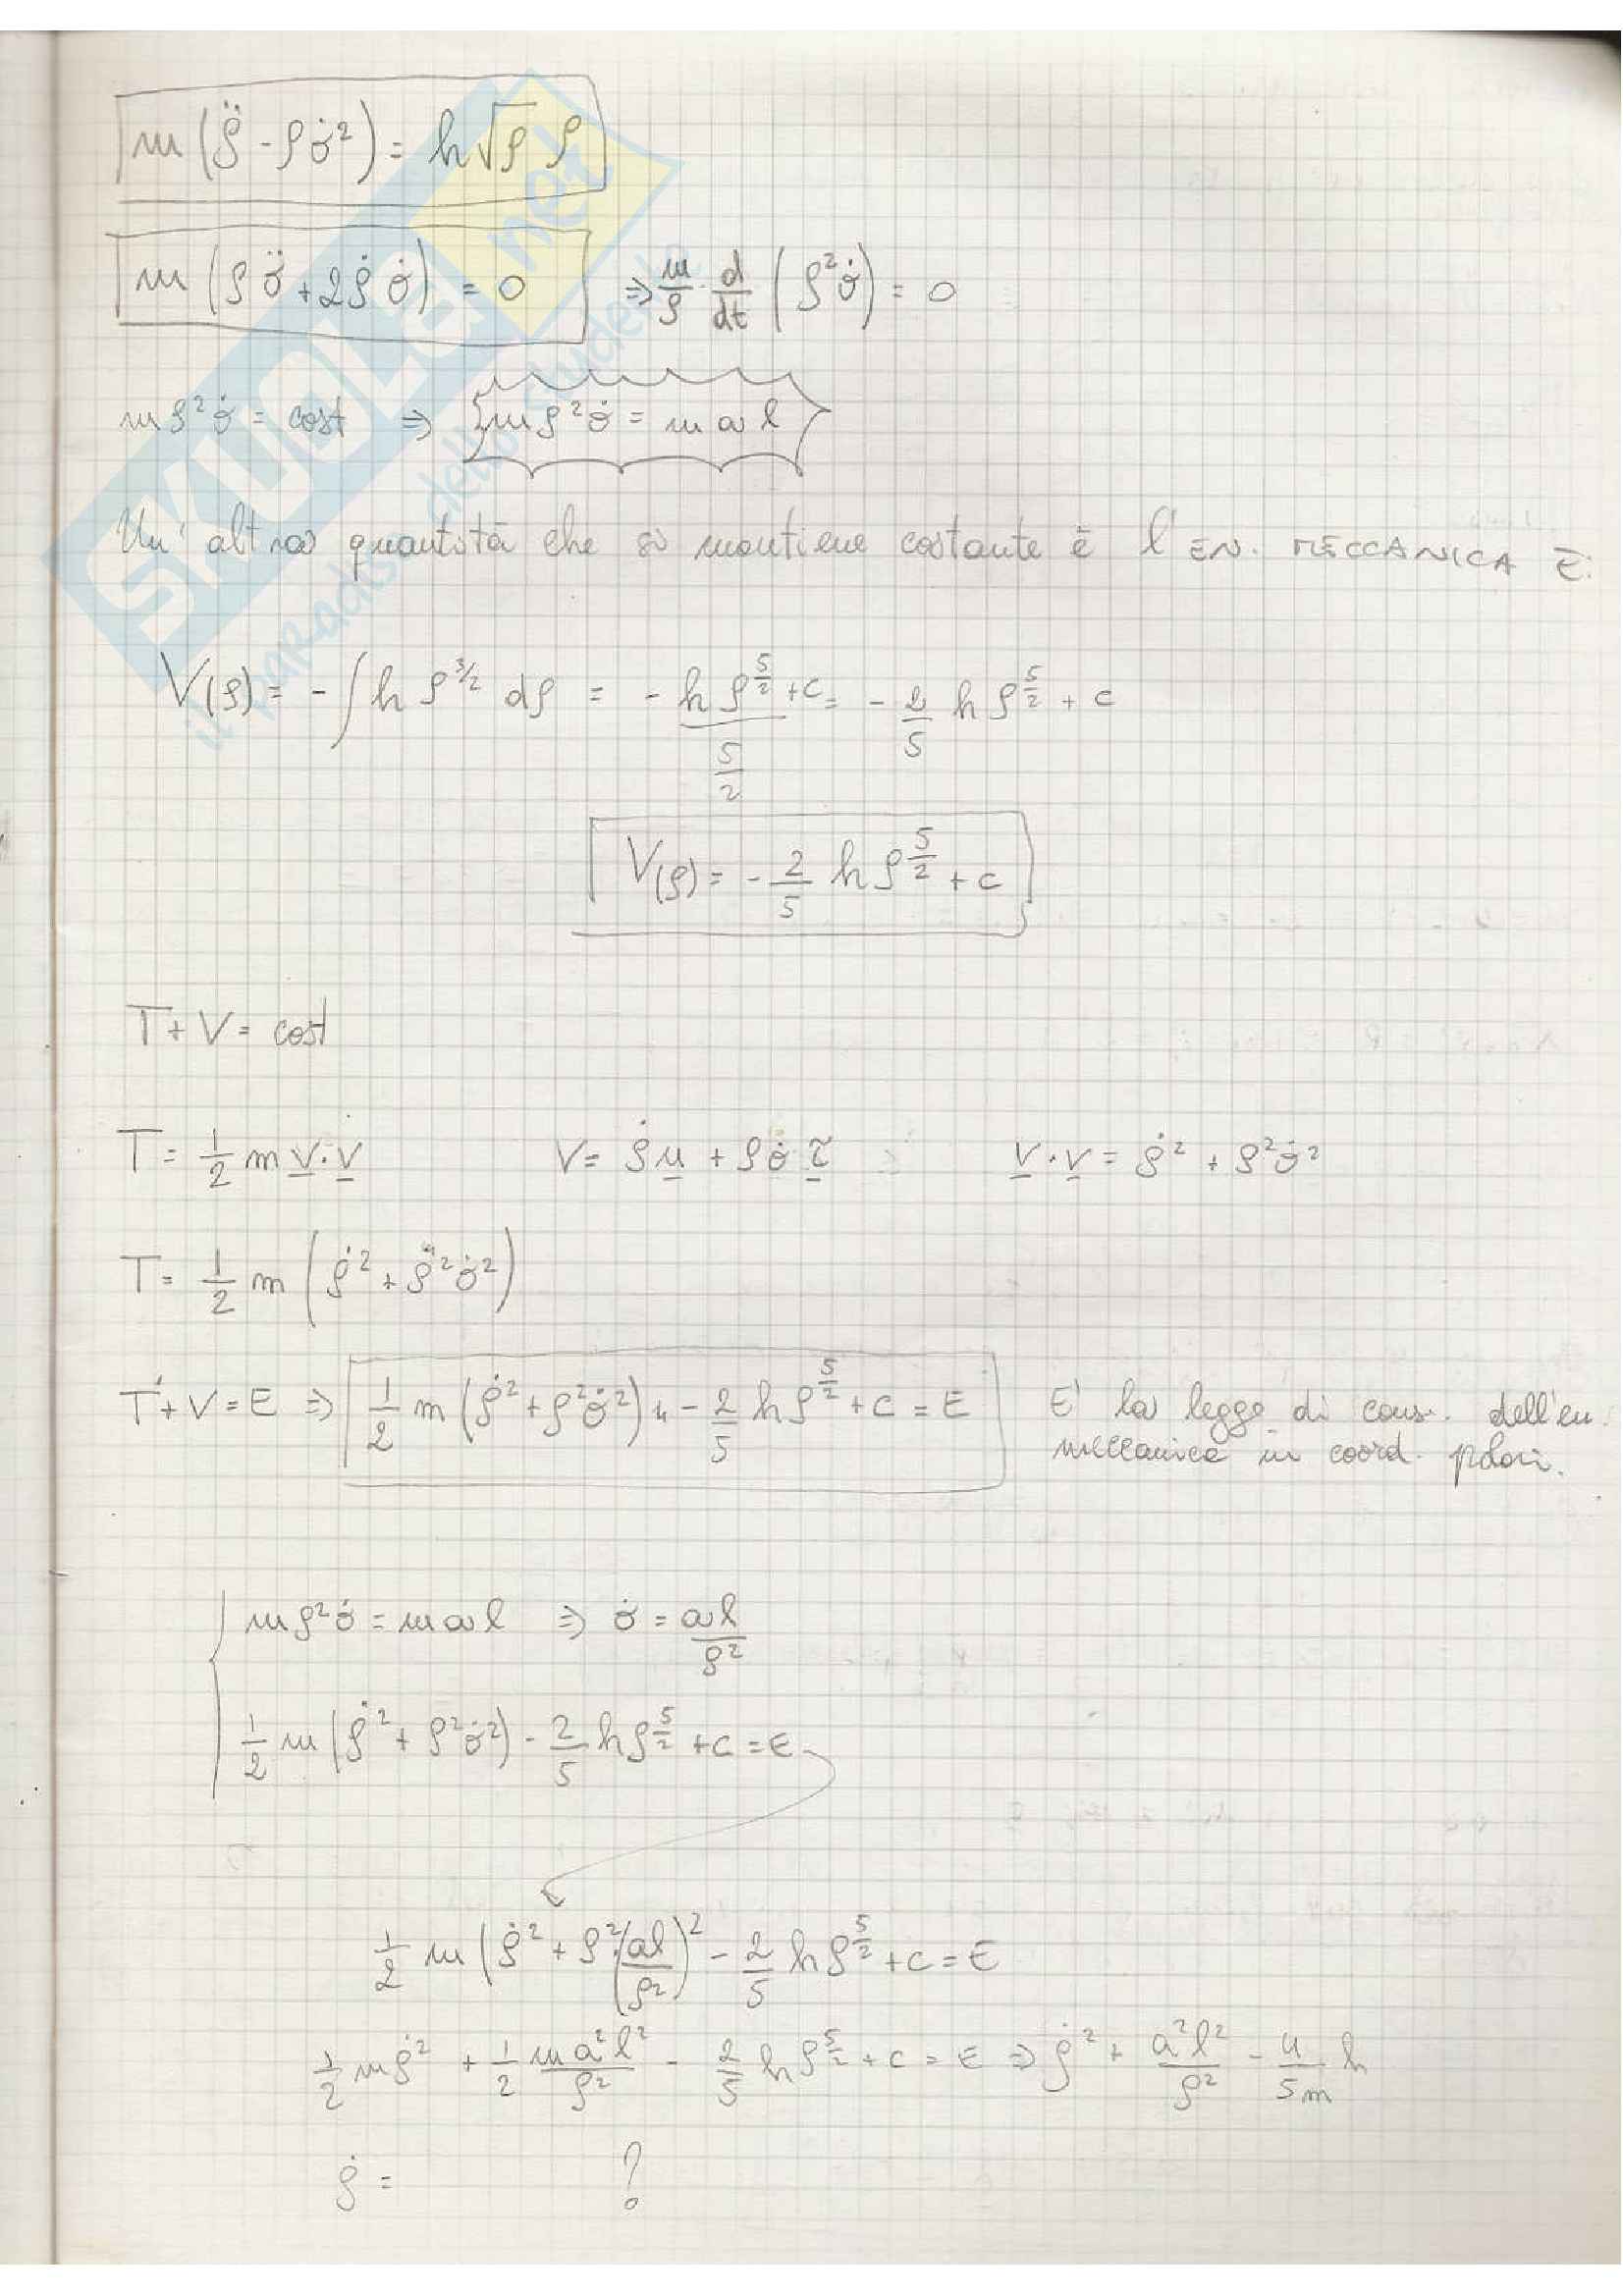 m(ρ̈ - ρσ̇²) = h√ρ ρ
m(ρσ̈ + 2ρ̇σ̇) = 0 ⇒ m/ρ · d/dt (ρ²σ̇) = 0
mρ²σ̇ = cost ⇒ mρ²σ̇ = m a l
Un' altra quantità che si mantiene costante è l'EN. MECCANICA E.
V(ρ) = - ∫ h ρ^3/2 dρ = - h ρ^5/2 / 5/2 + c = - 2/5 h ρ^5/2 + c
V(ρ) = - 2/5 h ρ^5/2 + c
T + V = cost
T = 1/2 m v · v V = ρ̇u + ρσ̇τ v · v = ρ̇² + ρ²σ̇²
T = 1/2 m (ρ̇² + ρ²σ̇²)
T + V = E ⇒ 1/2 m (ρ̇² + ρ²σ̇²) + - 2/5 h ρ^5/2 + c = E E' la legge di cons. dell'en.
meccanica in coord. polari.
mρ²σ̇ = m a l ⇒ σ̇ = al/ρ²
1/2 m (ρ̇² + ρ²σ̇²) - 2/5 h ρ^5/2 + c = E
1/2 m (ρ̇² + ρ² (al/ρ²)² - 2/5 h ρ^5/2 + c = E
1/2 mρ̇² + 1/2 m a²l²/ρ² - 2/5 h ρ^5/2 + c = E ⇒ ρ̇² + a²l²/ρ² - 4/5m h
ρ̇ = ?
SKUOLA.net
il paradiso dello studente